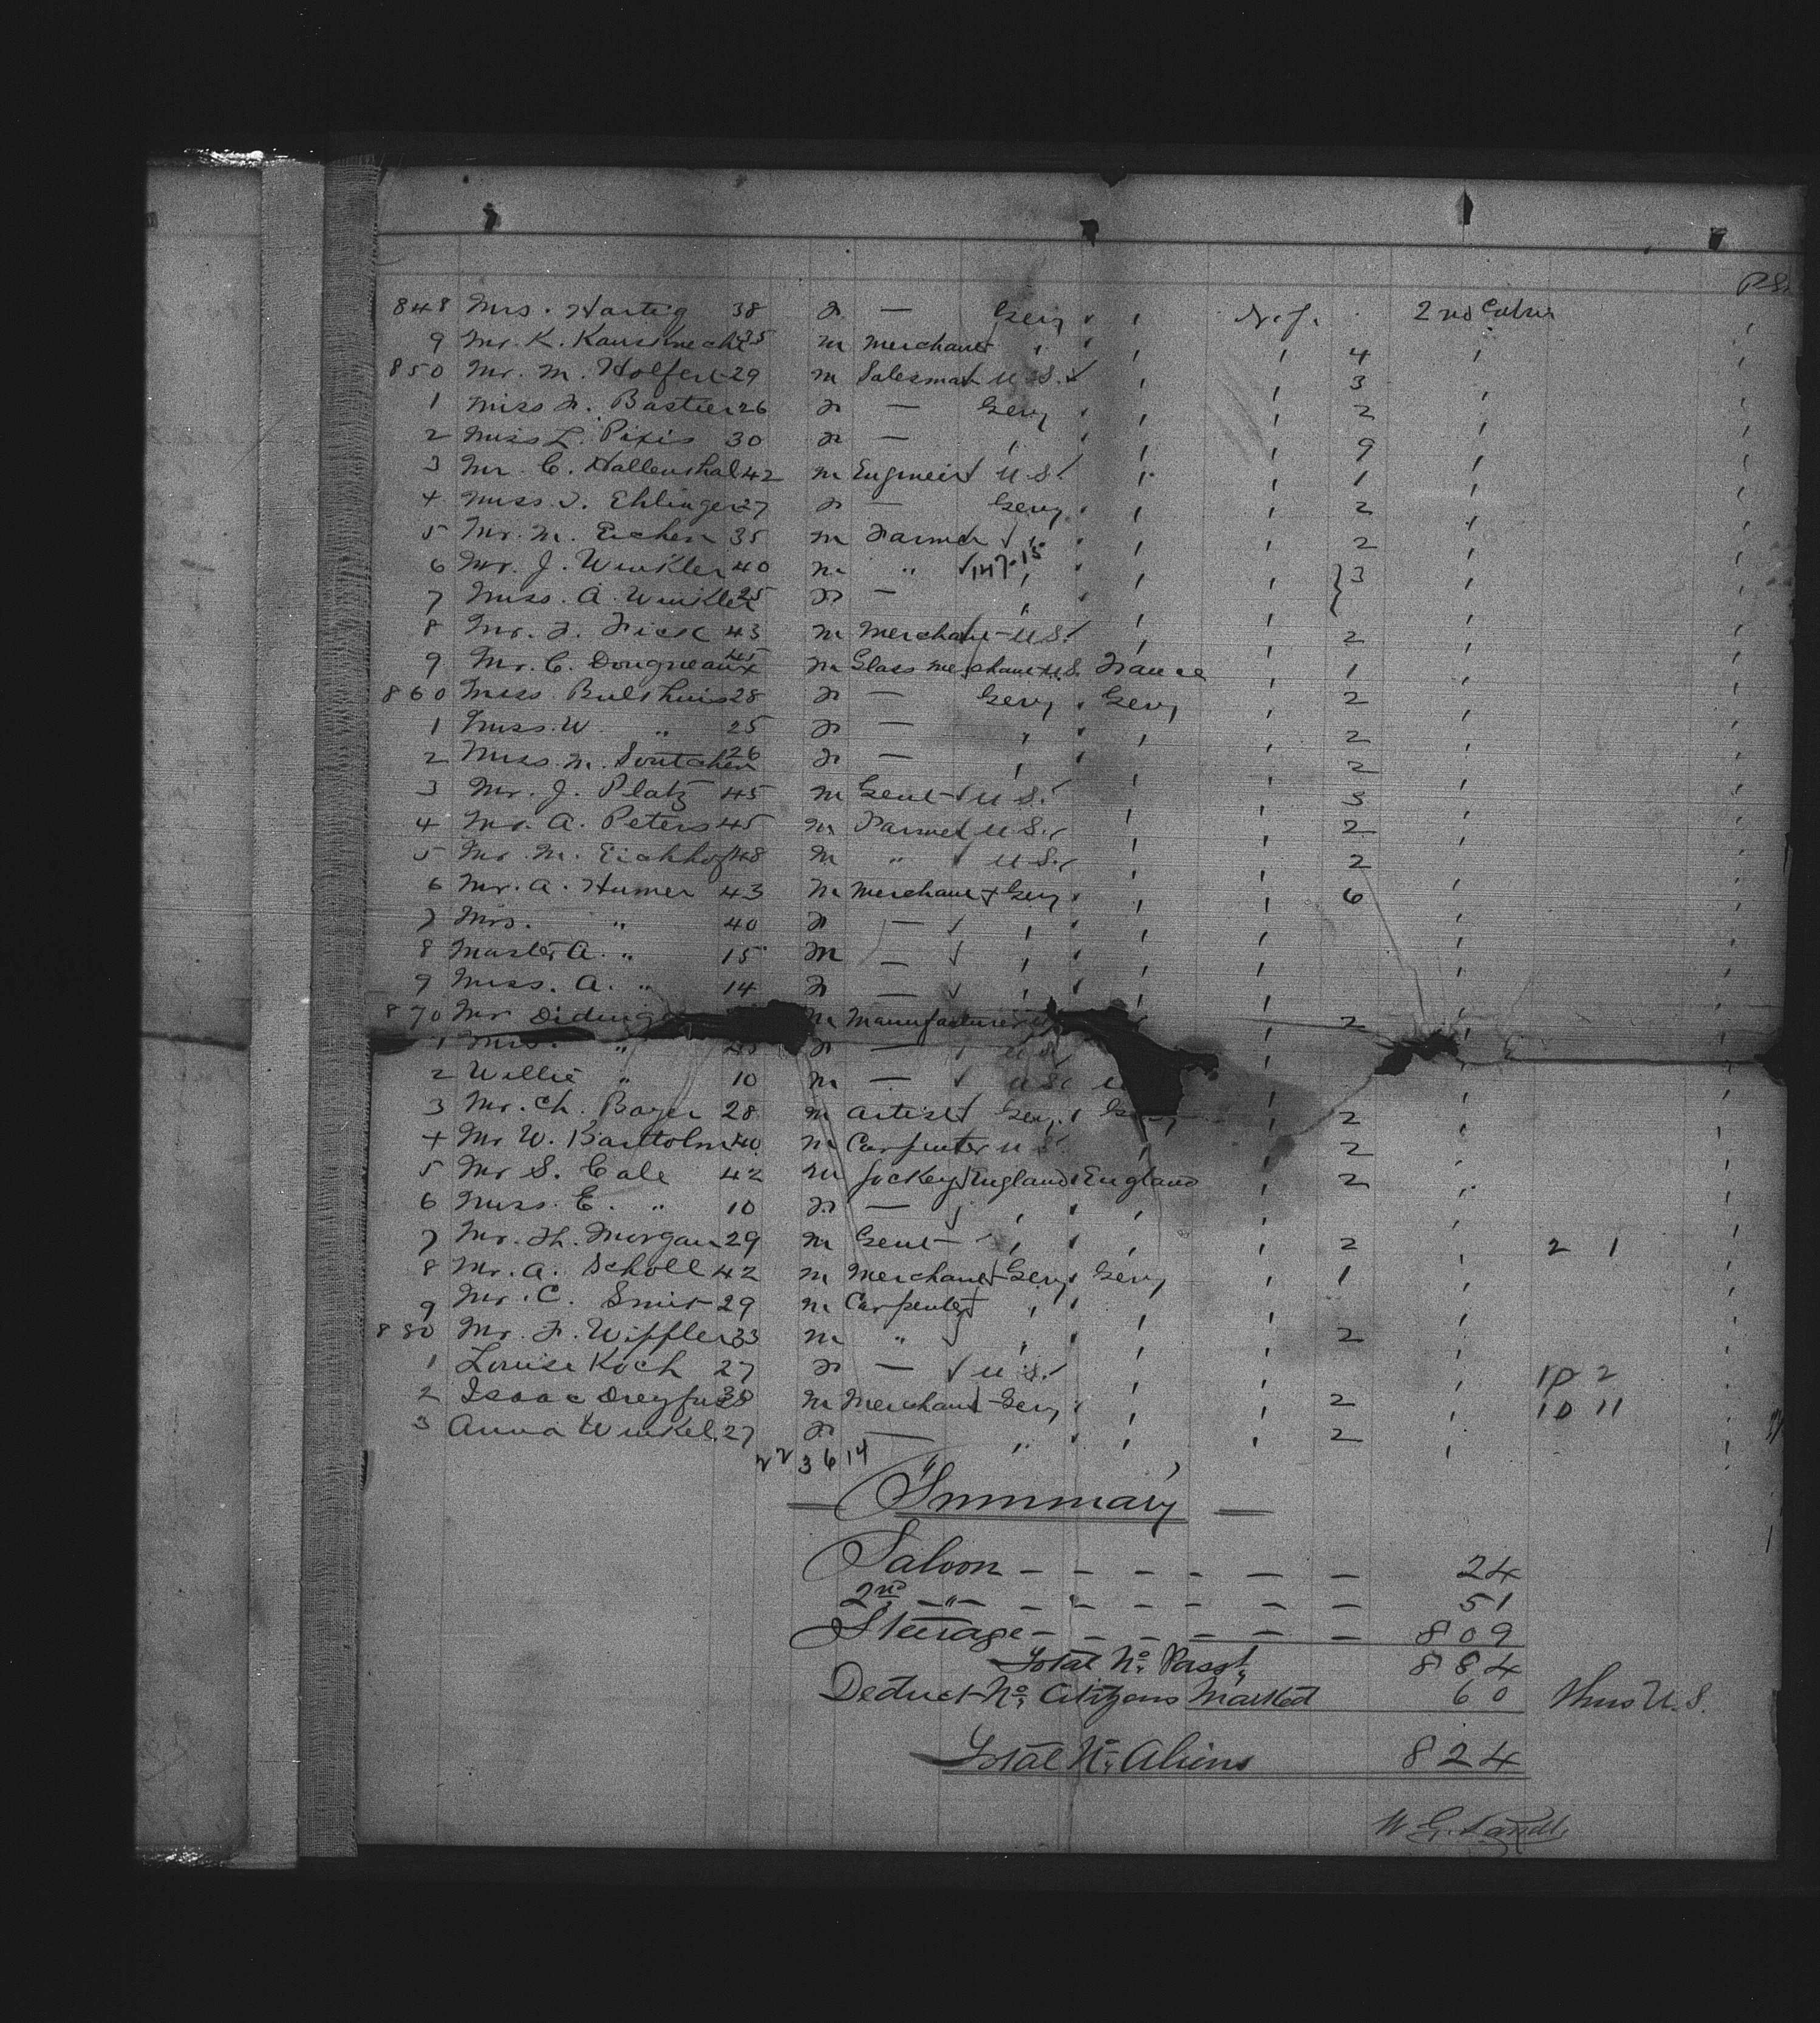 848 Mrs. Hartig 38 F — Gery " " N.Y. 2nd Cabin
9 Mr. K. 35 M Merchant " " " " 4 "
850 Mr. M. Holfert 29 M Salesman U.S. " " 3 "
1 Miss F. Bastier 26 F — Gery " " " 2 "
2 Miss L. Pixis 30 F — " " " " 9 "
3 Mr C. Hallenthal 42 M Engineer U.S. " " 1 "
4 Miss Ehlinger 27 F — Gery " " " 2 "
5 Mr. M. Eichen 35 M Farmer " " " " 2 "
6 Mr. J. Winkler 40 M " " " " " } 3 "
7 Miss. A. Winkler 25 F — " " " " "
8 Mr. F. Fick 43 M Merchant U.S. " " 2 "
9 Mr. C. Dougneaux 45 M Glass merchant U.S. France " 1 "
860 Miss Bulthuis 28 F — Gery " Gery " 2 "
1 Miss. W. " 25 F — " " " " 2 "
2 Miss. M. 26 F — " " " " 2 "
3 Mr. J. Platz 45 M Gent U.S. " " 3 "
4 Mr. A. Peters 45 M Farmer U.S. " " 2 "
5 Mr. M. Eichhof 48 M " U.S. " " 2 "
6 Mr. A. Humer 43 M Merchant Gery " " " 6 "
7 Mrs. " 40 F — " " " " "
8 Master A. " 15 M — " " " " "
9 Miss. A. " 14 F — " " " " "
870 Mr M Manufacturer 2 "
1 Mrs. " F — U.S. " "
2 Willie " 10 M — U.S. " "
3 Mr. Ch. Bayer 28 M Artist Gery " Gery " 2 "
4 Mr W. 40 M Carpenter U.S. " " 2 "
5 Mr S. Cale 42 M Jockey England England " 2 "
6 Miss. E. " 10 F — " " " "
7 Mr. H. Morgan 29 M Gent " " " " 2 " 2 1
8 Mr. A. Scholl 42 M Merchant Gery " Gery " 1 "
9 Mr. C. Smit 29 M Carpenter " " " " "
880 Mr. F. Wiffler 33 M " " " " " 2 "
1 Louise Koch 27 F — U.S. " " " 10 2
2 Isaac Dreyfus 38 M Merchant Gery " " " 2 " 10 11
3 Anna Winkel. 27 F — " " " " 2 "
2 2 3 6 14
— Summary —
Saloon - - - - - - 24
2nd - " - - - - - - 51
Steerage - - - - - - 809
Total No. Passr. 884
Deduct No. Citizens Marked 60 thus U.S.
Total No. Aliens 824